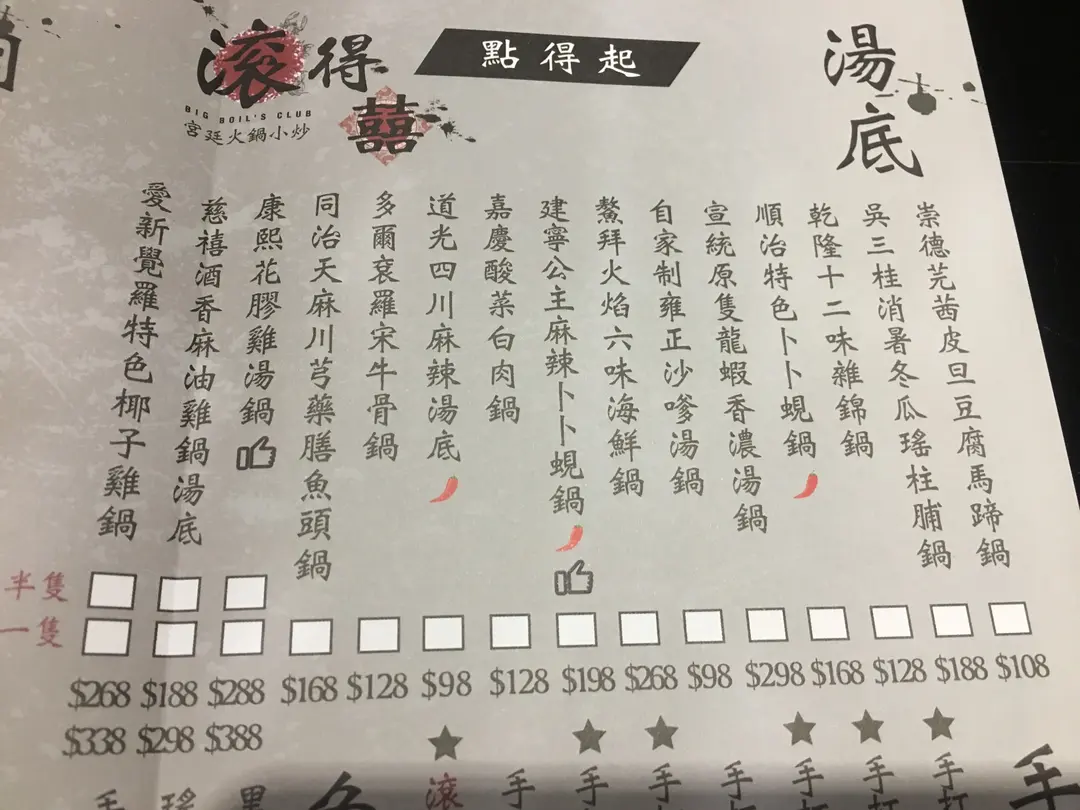 滾得囍
BIG BOIL'S CLUB
宮廷火鍋小炒
點得起
湯底
崇德芫茜皮旦豆腐馬蹄鍋
吳三桂消暑冬瓜瑤柱脯鍋
乾隆十二味雜錦鍋
順治特色卜卜蜆鍋
宣統原隻龍蝦香濃湯鍋
自家制雍正沙嗲湯鍋
鰲拜火焰六味海鮮鍋
建寧公主麻辣卜卜蜆鍋
嘉慶酸菜白肉鍋
道光四川麻辣湯底
多爾袞羅宋牛骨鍋
同治天麻川芎藥膳魚頭鍋
康熙花膠雞湯鍋
慈禧酒香麻油雞鍋湯底
愛新覺羅特色椰子雞鍋
半隻
一隻
$268 $188 $288 $168 $128 $98 $128 $198 $268 $98 $298 $168 $128 $188 $108
$338 $298 $388
滾 手 手 手 手 手 手 手